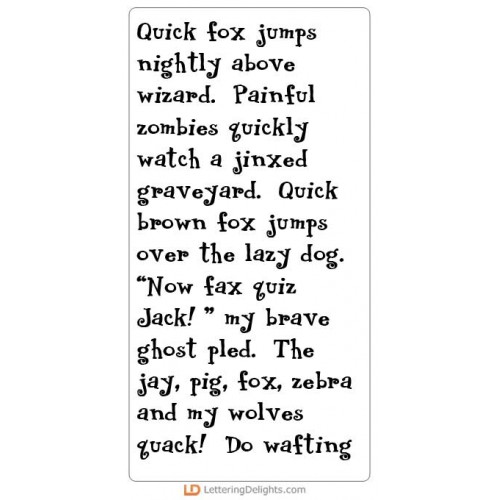 Quick fox jumps
nightly above
wizard. Painful
zombies quickly
watch a jinxed
graveyard. Quick
brown fox jumps
over the lazy dog.
“Now fax quiz
Jack! ” my brave
ghost pled. The
jay, pig, fox, zebra
and my wolves
quack! Do wafting
LD LetteringDelights.com